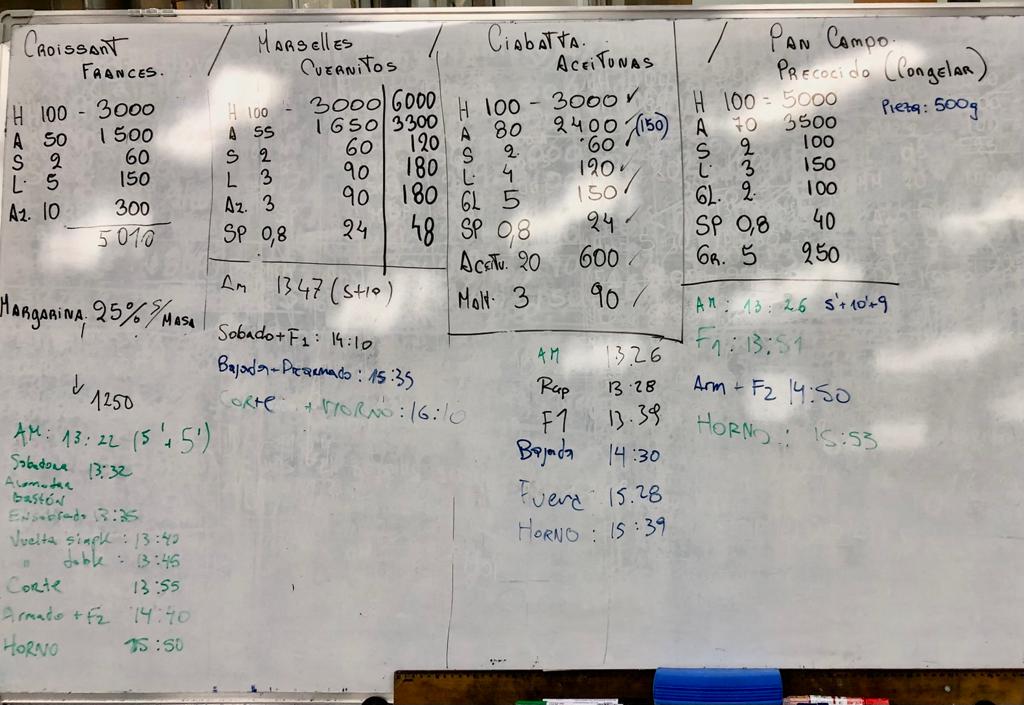 CROISSANT
FRANCES.
H 100 - 3000
A 50 1500
S 2 60
L 5 150
Az. 10 300
5010
MARGARINA: 25% S/MASA
↓ 1250
AM: 13:22 (5'+5')
Sobadora 13:32
Acomodar
Bastón
Ensobrado 13:35
Vuelta simple : 13:40
" doble : 13:45
Corte 13:55
Armado + F2 14:40
HORNO 15:50
/ MARSELLES /
CUERNITOS
H 100 - 3000 6000
A 55 1650 3300
S 2 60 120
L 3 90 180
Az. 3 90 180
SP 0,8 24 48
Am 1347 (5+10)
Sobado+F1: 14:10
Bajada+Prearmado: 15:35
CORTE + HORNO: 16:10
CIABATTA.
ACEITUNAS
H 100 - 3000 ✓
A 80 2400 ✓ (150)
S 2 60 ✓
L 4 120 ✓
GL 5 150 ✓
SP 0,8 24 ✓
Aceitu. 20 600 ✓
Malt. 3 90 ✓
AM 13.26
Rap 13.28
F1 13.39
Bajada 14:30
Fuera 15.28
HORNO: 15:39
/ PAN CAMPO.
PRECOCIDO (Congelar)
H 100 = 5000 Pieza: 500g
A 70 3500
S 2 100
L 3 150
GL. 2 100
SP 0,8 40
Gr. 5 250
AM: 13:26 5'+10'+9
F1: 13:51
Arm + F2 14:50
HORNO: 15:53